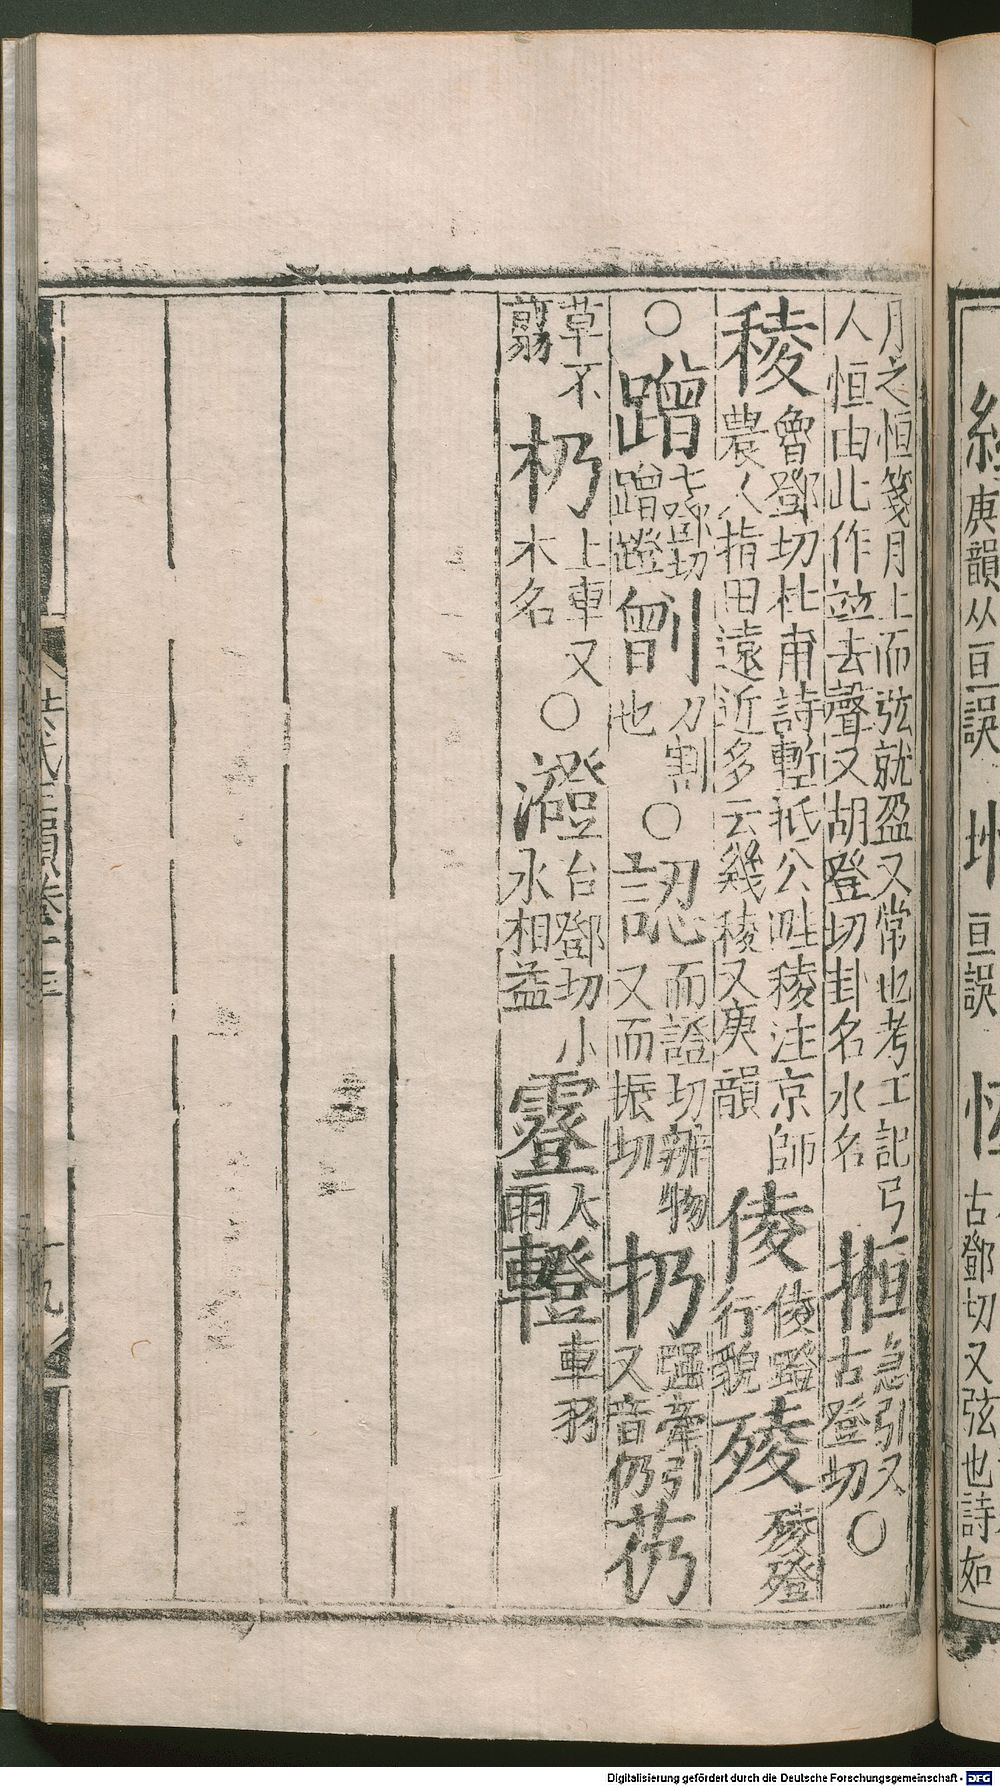 經 庚韻从亘誤 亘誤 古鄧切又弦也詩如
月之恒箋月上而弦就盈又常也考工記弓
人恒由此作竝去聲又胡登切卦名水名 搄 急引又古登切 ○
稜 魯鄧切杜甫詩塹抵公畦稜注京師農人指田遠近多云幾稜又庚韻 倰 倰蹬行貌 㱥 㱥殑
○ 蹭 七鄧切蹭蹬 㔇 刀割也 ○ 認 而證切辨物又而振切 扔 强牽引又音仍 芿
草不翦 杒 上車又木名 ○ 澄 台鄧切小水相益 霯 大雨 車羽
洪武正韻卷十三
十九
Digitalisierung gefördert durch die Deutsche Forschungsgemeinschaft - DFG